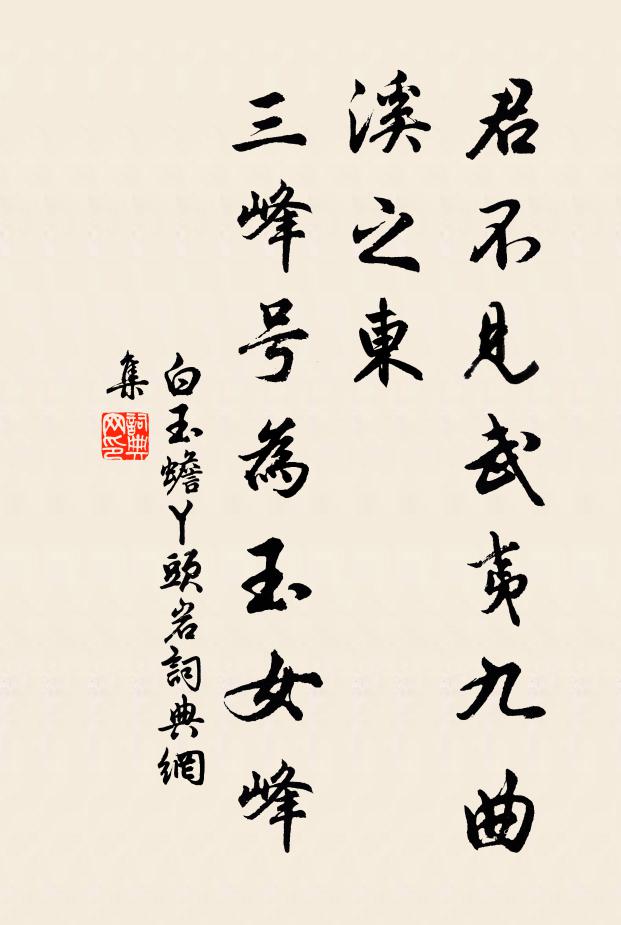 君不見武夷九曲
溪之東
三峰号為玉女峰
白玉蟾丫頭岩詞典網
集
詞典
网印